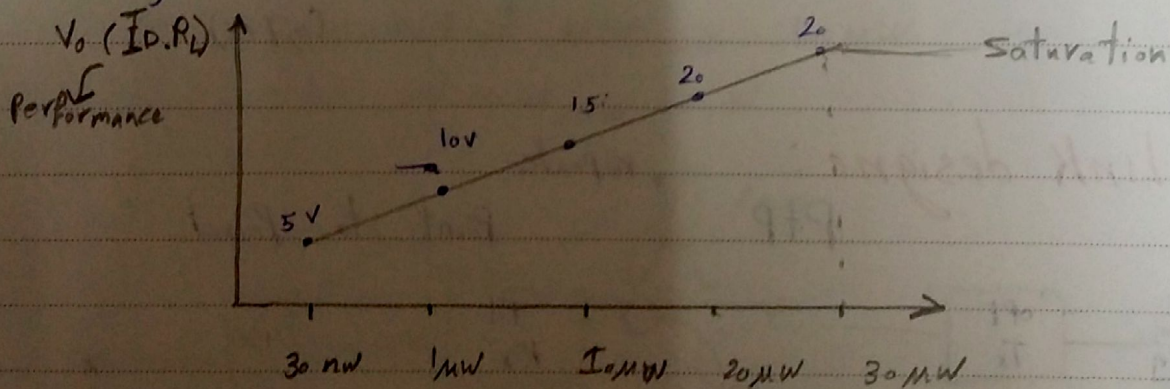 V₀ (I_D.R_L)
Performance
5 V
10V
15
20
20
Saturation
30 nW
1 μW
10 μW
20 μW
30 μW